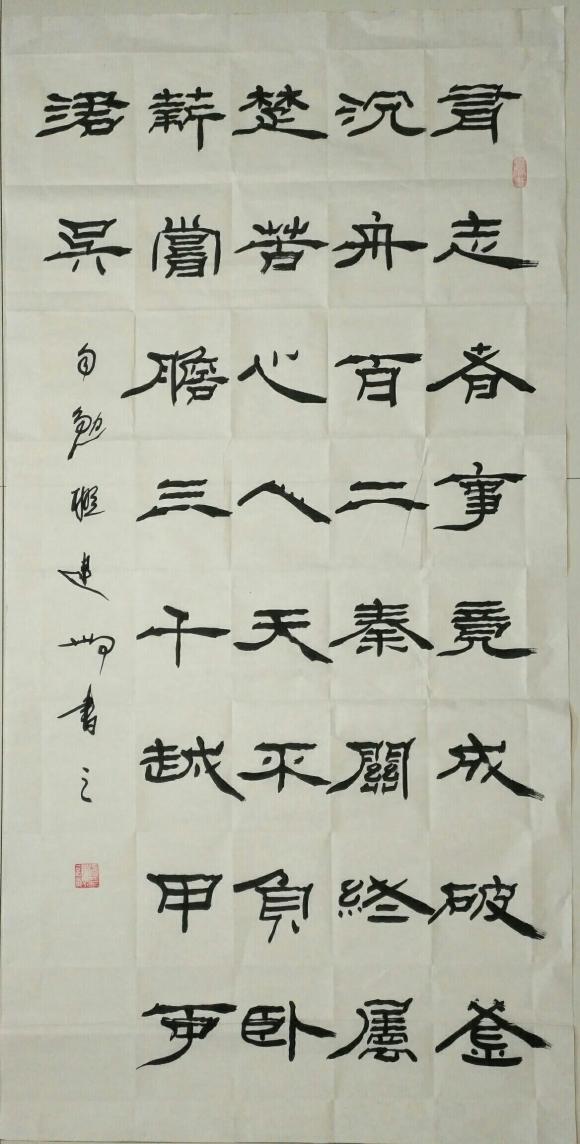 有志者事竟成破釜
沉舟百二秦關終屬
楚苦心人天不負卧
薪嘗膽三千越甲可
吴
自勉聯建書之